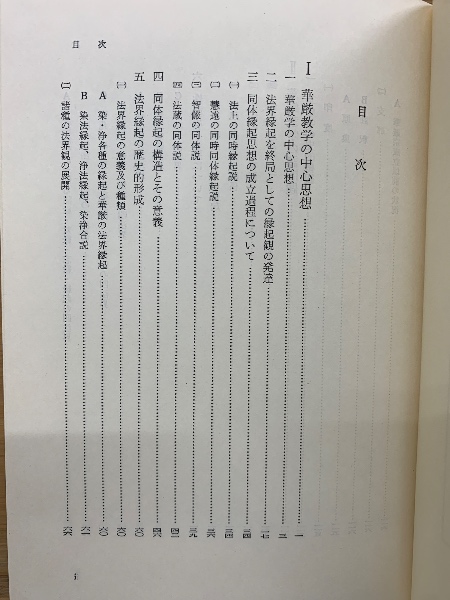 目次
目次
Ⅰ 華厳教学の中心思想 一
一 華厳学の中心思想 三
二 法界縁起を終局としての縁起観の発達 一七
三 同体縁起思想の成立過程について 二四
(一) 法上の同時縁起説 二四
(二) 慧遠の同時同体縁起説 二六
(三) 智儼の同体説 三九
(四) 法蔵の同体説 四二
四 同体縁起の構造とその意義 四六
五 法界縁起の歴史的形成 六〇
(一) 法界縁起の意義及び種類 六〇
A 染・浄各種の縁起と華厳の法界縁起 六〇
B 染法縁起、浄法縁起、染浄合説 六二
(二) 諸種の法界観の展開 六六
i